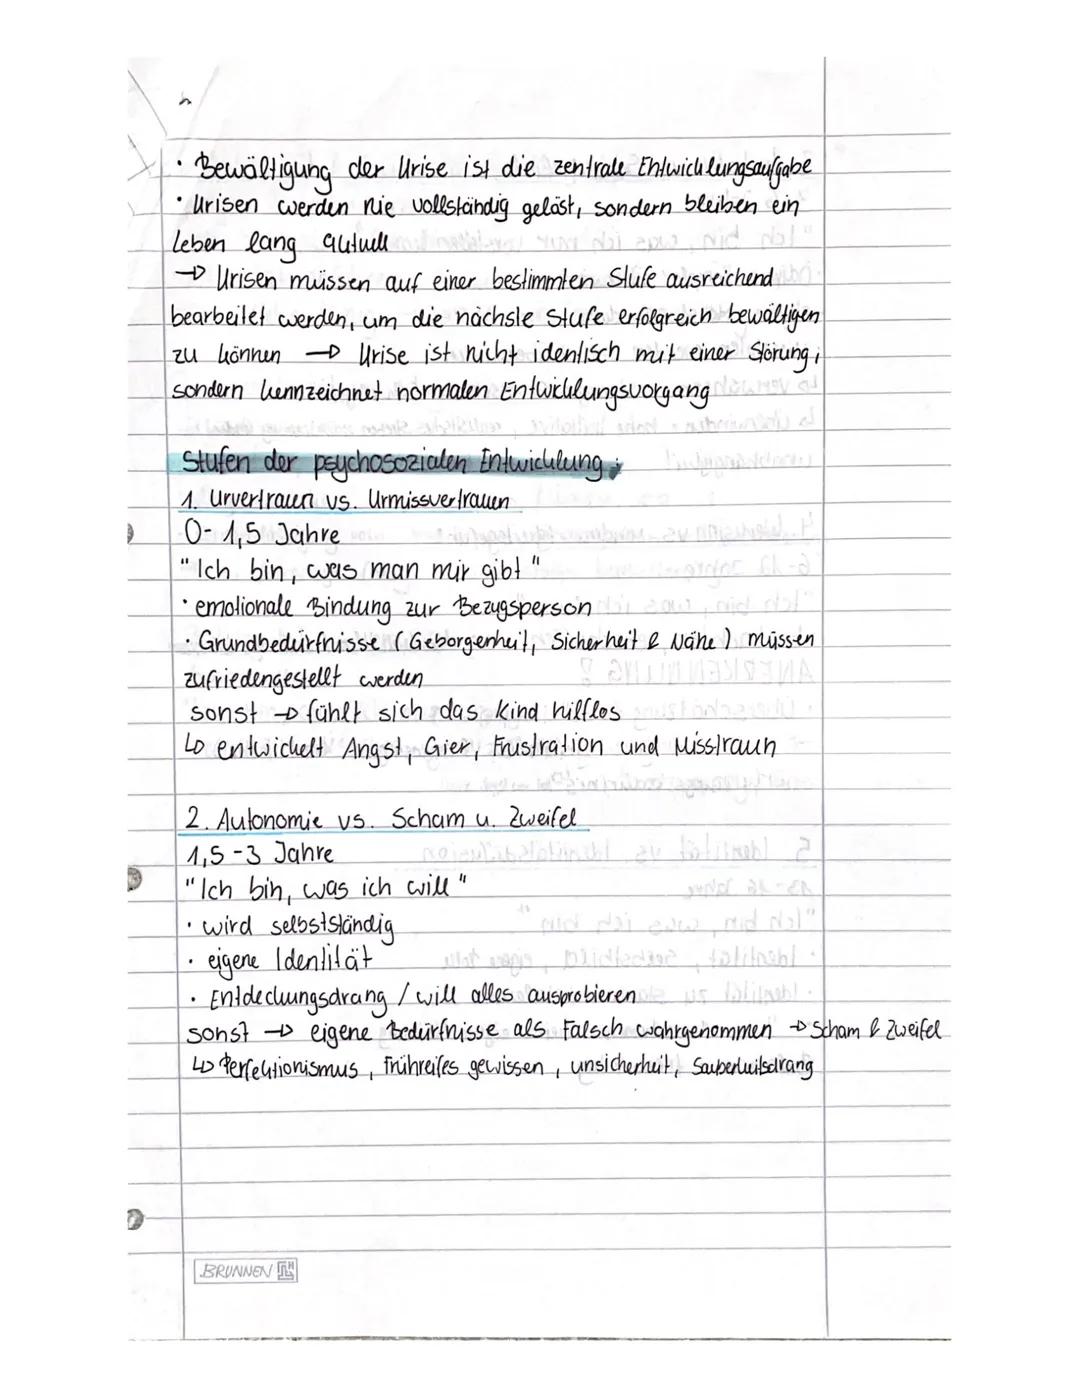 • Bewältigung der Krise ist die zentrale Entwicklungsaufgabe
• Krisen werden nie vollständig gelöst, sondern bleiben ein
Leben lang aktuell
→ Krisen müssen auf einer bestimmten Stufe ausreichend
bearbeitet werden, um die nächste Stufe erfolgreich bewältigen
zu können → Krise ist nicht identisch mit einer Störung,
sondern kennzeichnet normalen Entwicklungsvorgang
Stufen der psychosozialen Entwicklung:
1. Urvertrauen vs. Urmissvertrauen
0-1,5 Jahre
"Ich bin, was man mir gibt"
• emotionale Bindung zur Bezugsperson
• Grundbedürfnisse (Geborgenheit, Sicherheit & Nähe) müssen
zufriedengestellt werden
sonst → fühlt sich das Kind hilflos
↳ entwickelt Angst, Gier, Frustration und Misstraun
2. Autonomie vs. Scham u. Zweifel
1,5-3 Jahre
"Ich bin, was ich will"
• wird selbstständig
• eigene Identität
• Entdeckungsdrang / will alles ausprobieren
sonst → eigene Bedürfnisse als Falsch wahrgenommen → Scham & Zweifel
↳ Perfektionismus, Frühreifes gewissen, unsicherheit, Sauberkeitsdrang
BRUNNEN